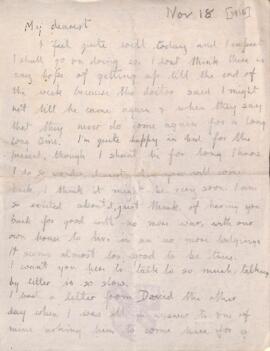 Nov 18 [1918]
My dearest
I feel quite well today and I expect
I shall go on doing so. I dont think there is
any hope of getting up till the end of
the week because the doctor said I might
not till he came again & when they say
that they never do come again for a long
long time. I'm quite happy in bed for the
present, though I shant be for long I know
I do so wonder when you will come
back, I think it might be very soon. I am
so excited about it, just think of having you
back for good with no more war, with our
own house to live in an no more lodgings
It seems almost too good to be true.
I want you here to talk to so much, talking
by letter is so slow.
I had a letter from David the other
day when I was ill in answer to one of
mine asking him to come here for a